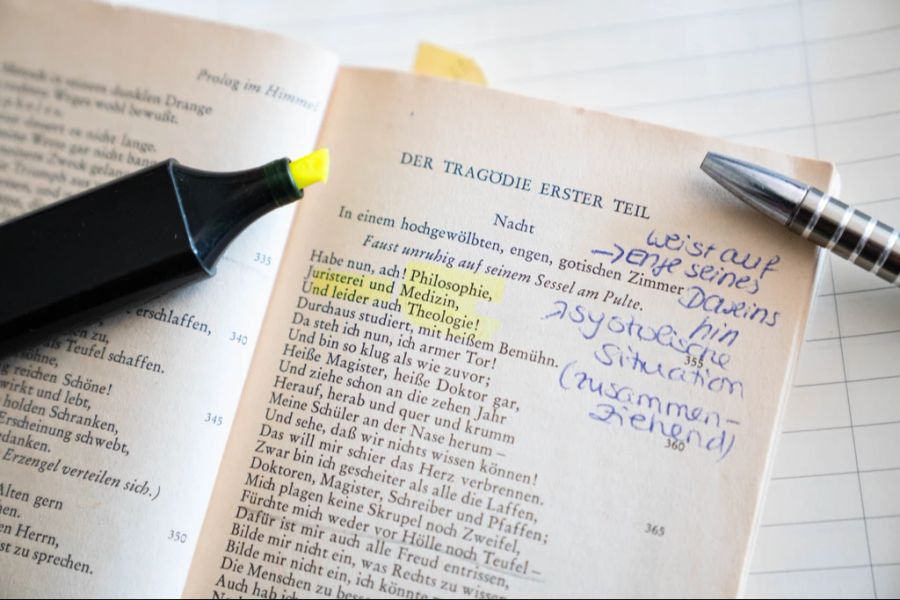 Prolog im Himmel
dunklen Drange
Weges wohl bewußt.
nicht lange.
gar nicht bang
335
erschlaffen,
340
als Teufel schaffen.
reichen Schöne!
wirkt und lebt,
345
holden Schranken,
Erscheinung schwebt,
Erzengel verteilen sich.)
Alten gern
350
Herrn,
zu sprechen.
DER TRAGÖDIE ERSTER TEIL
Nacht
In einem hochgewölbten, engen, gotischen Zimmer
Faust unruhig auf seinem Sessel am Pulte.
Habe nun, ach! Philosophie,
Juristerei und Medizin,
Und leider auch Theologie!
Durchaus studiert, mit heißem Bemühn.
Da steh ich nun, ich armer Tor!
355
Und bin so klug als wie zuvor;
Heiße Magister, heiße Doktor gar,
Und ziehe schon an die zehen Jahr
Herauf, herab und quer und krumm
Meine Schüler an der Nase herum –
360
Und sehe, daß wir nichts wissen können!
Das will mir schier das Herz verbrennen.
Zwar bin ich gescheiter als alle die Laffen,
Doktoren, Magister, Schreiber und Pfaffen;
Mich plagen keine Skrupel noch Zweifel,
365
Fürchte mich weder vor Hölle noch Teufel –
Dafür ist mir auch alle Freud entrissen,
Bilde mir nicht ein, was Rechts zu wissen
Bilde mir nicht ein, ich könnte
Die Menschen zu
Auch hab
weist auf
→ Enge seines
Daseins
hin
Situation
(zusammen-
ziehend)